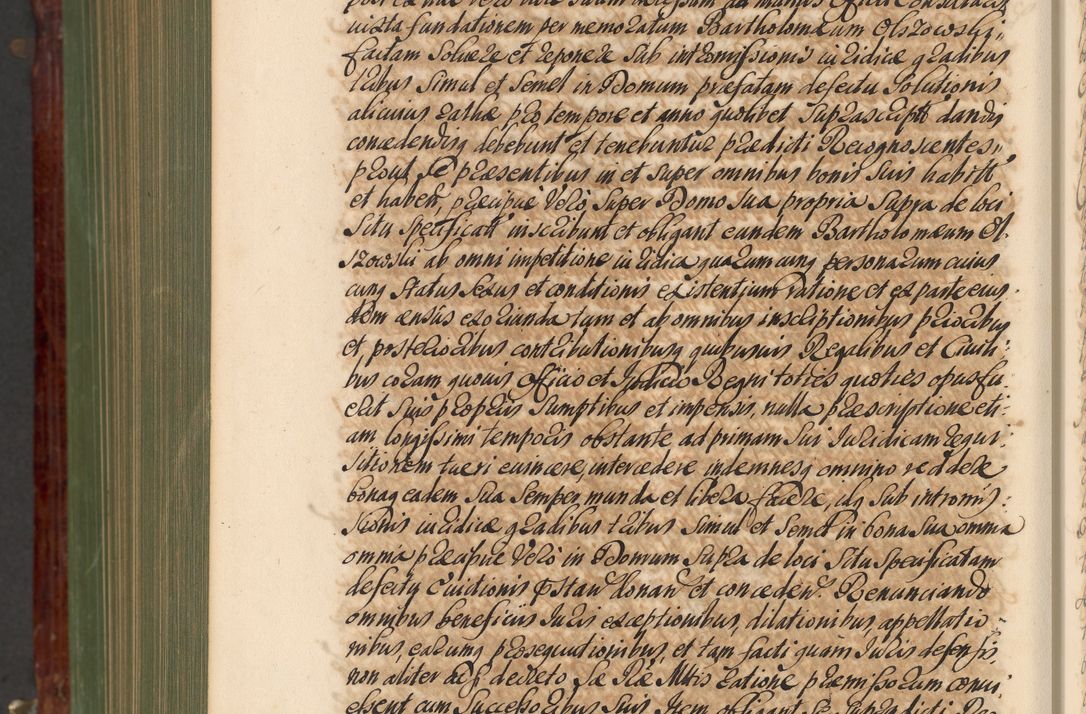 iuxta fundationem per memoratum Bartholomæum Olszowski
factam Solvere et reponere Sub intromissionis iuridicæ gradibus
tribus Simul et Semel in Domum præfatam defectu Solutionis
alicuius rathæ pro tempore et anno quolibet Suprascriptt dandis
concedendisq debebunt et tenebuntur prædicti Recognoscentes,
prout Se præsentibus in et Super omnibus bonis Suis habitt
et haben, præcipue Vero Super Domo Sua propria Supra de loci
Situ Specificatt inscribunt et obligant eundem Bartholomæum Ol-
szowski ab omni impetitione iuridica quarumcunq personarum cuius
cunq Status Sexus et conditionis existentium ratione et ex parte eius-
dem census exoriunda tam et ab omnibus inscriptionibus prioribus
et posterioribus contributionibusq quibusuis Regalibus et Civili:
bus coram quouis Officio et Judicio Regni toties quoties opus fu:
erit Suis propriis Sumptibus et impensis, nulla præscriptione eti:
am longissimi temporis obstante ad primam Sui Juridicam requi:
sitionem tueri euincere, intercedere indemnesq omnino reddere
bonaq eadem Sua Semper munda et libera facere, idq Sub intromis:
sionis iuridicæ gradibus tribus Simul et Semel in bona Sua omnia
omnia præcipue Vero in Domum Supra de loci Situ Specificatam
defectu Euictionis
et conceden. Renunciando
omnibus beneficiis Juris exceptionibus, dilationibus, appellatio-
nibus, earumq prosequutionibus, et tam facti quam Juris defensis,
non aliter
decreto Sæ Ræ Mttis ratione præmissorum conui:
essent cum Successoribus Suis Item obligant Se Suprad